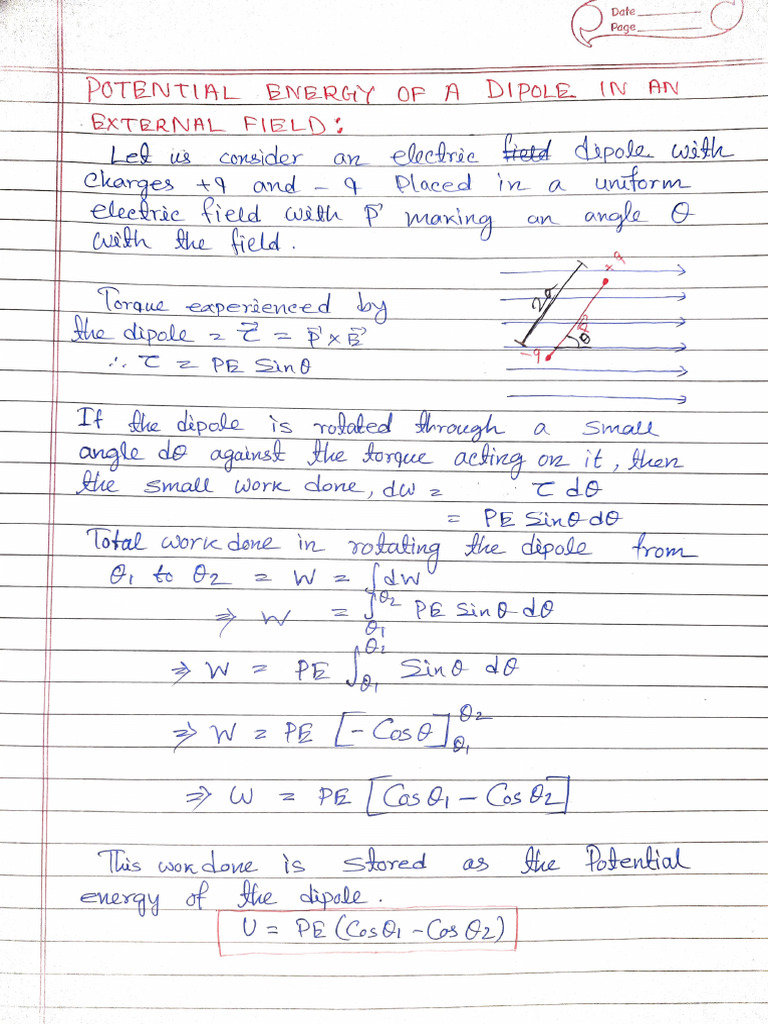 Date
Page
POTENTIAL ENERGY OF A DIPOLE IN AN
EXTERNAL FIELD:
Let us consider an electric field dipole with
charges +q and - q Placed in a uniform
electric field with P⃗ making an angle θ
with the field.
+q
2a
Torque experienced by
the dipole = τ⃗ = P⃗ × E⃗
θ
-q
∴ τ = PE Sinθ
If the dipole is rotated through a small
angle dθ against the torque acting on it, then
the small work done, dw = τ dθ
= PE Sinθ dθ
Total work done in rotating the dipole from
θ1 to θ2 = W = ∫dW
⇒ W = ∫θ1θ2 PE Sinθ dθ
⇒ W = PE ∫θ1θ2 Sinθ dθ
⇒ W = PE [- Cosθ]θ1θ2
⇒ W = PE [Cosθ1 - Cosθ2]
This work done is stored as the Potential
energy of the dipole.
U = PE (Cosθ1 - Cosθ2)